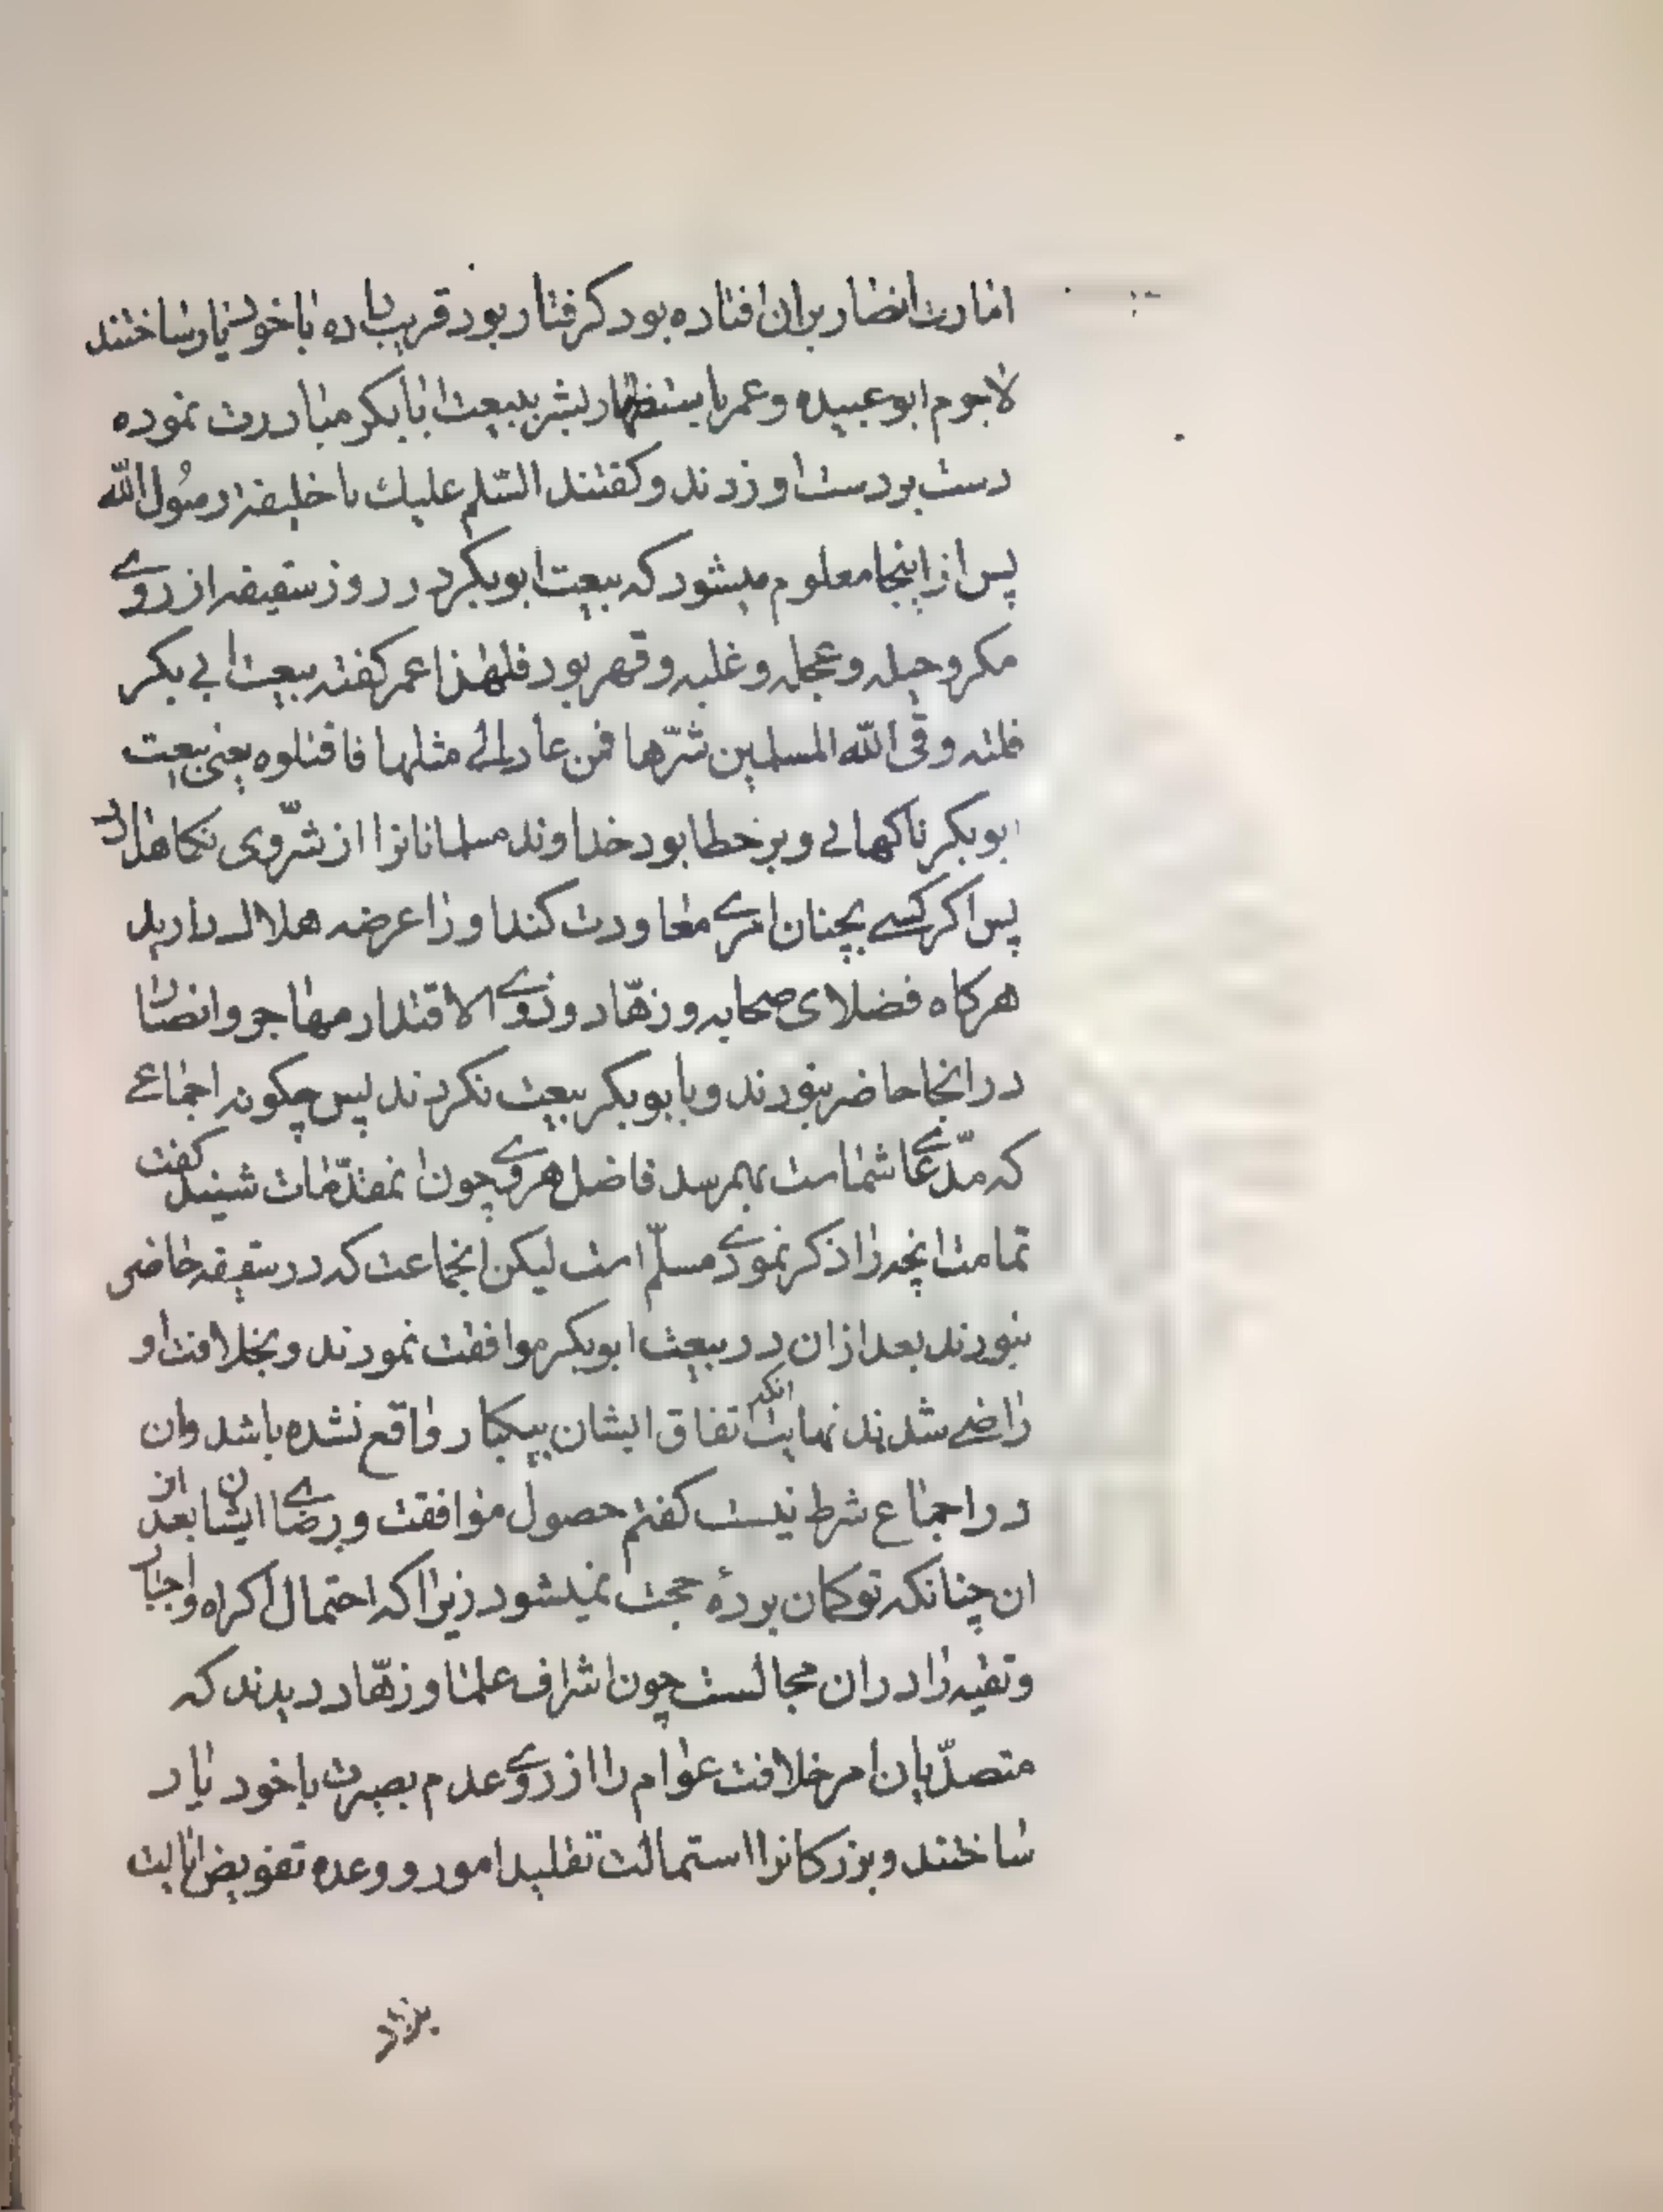 امارت انصار بران افتاده بود کرفتار بود قریب داده باخود یار ساختند
لاجرم ابوعبیده وعمر باستظهار بشر ببیعت ابابکر مبادرت نموده
دست بردست او زدند وکفتند السّلم علیك یا خلیفه رسُول الله
پس از اینجا معلوم میشود که بیعت ابوبکر در روز سقیفه از روے
مکر وحیله وعجله وغلبه وقهر بود فلهٰذا عمر کفته بیعت ابی بکر
فلته وقی الله المسلمین شرّها فمن عاد الی مثلها فاقتلوه یعنی بیعت
ابوبکر ناکهانی وبر خطا بود خداوند مسلمانانرا از شرّ وی نکاهدارد
پس اکر کسے بچنان امرے معاودت کند او را عرضه هلاك دارید
هرکاه فضلای صحابه وزهّاد وذوے الاقتدار مهاجر وانصار
در انجا حاضر نبودند وبا ابوبکر بیعت نکردند پس چکونه اجماعے
که مدّعاے شماست بهمرسد فاضل هروے چون انمقدّمات شنید کفت
تمامت انچه را ذکر نمودے مسلّم است لیکن انجماعت که در سقیفه حاضر
نبودند بعد ازان در بیعت ابوبکر موافقت نمودند وبخلافت او
راضے شدند نهایت انکه اتفاق ایشان بیکبار واقع نشده باشد وان
در اجماع شرط نیست کفتم حصول موافقت ورضاے ایشان بعد از
ان چنانکه تو کمان بردهٔ حجت نمیشود زیرا که احتمال اکراه واجبار
وتقیه را دران مجالست چون اشراف علما وزهّاد دیدند که
متصدّیان امر خلافت عوام را از روے عدم بصیرت باخود یار
ساختند وبزرکانرا استمالت تقلید امور ووعده تفویض ایالت